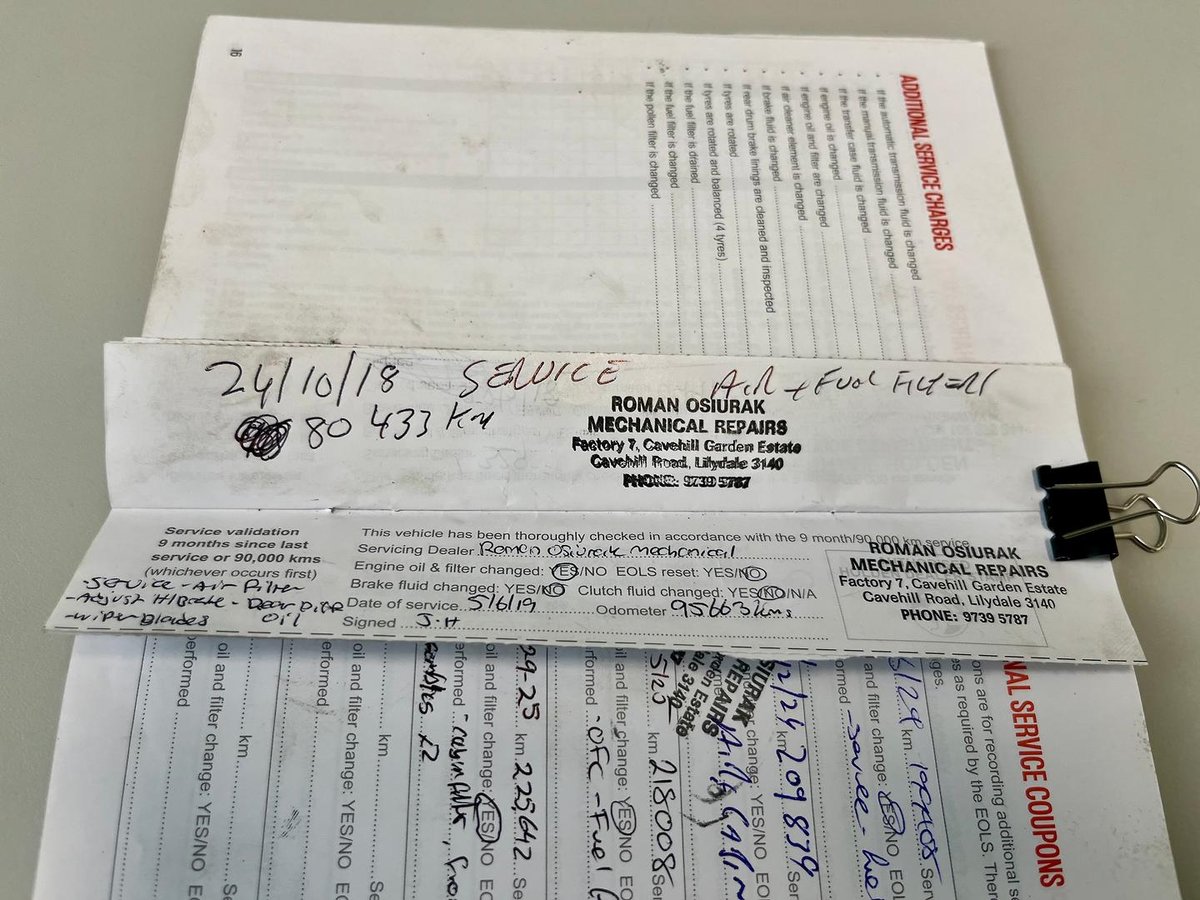 16
ADDITIONAL SERVICE CHARGES
If the automatic transmission fluid is changed
If the manual transmission fluid is changed
If the transfer case fluid is changed
If engine oil is changed
If engine oil and filter are changed
If air cleaner element is changed
If brake fluid is changed
If rear drum brake linings are cleaned and inspected
If tyres are rotated
If tyres are rotated and balanced (4 tyres)
If the fuel filter is drained
If the fuel filter is changed
If the pollen filter is changed
24/10/18 SERVICE Air + Fuel Filters
80 433 Km
ROMAN OSIURAK
MECHANICAL REPAIRS
Factory 7, Cavehill Garden Estate
Cavehill Road, Lilydale 3140
PHONE: 9739 5787
Service validation
9 months since last
service or 90,000 kms
(whichever occurs first)
-Service -Air Filter
-Adjust H/Brake -Rear Diff
-Wiper Blades Oil
This vehicle has been thoroughly checked in accordance with the 9 month/90,000 km service
Servicing Dealer Roman Osiurak mechanical
Engine oil & filter changed: YES/NO EOLS reset: YES/NO
Brake fluid changed: YES/NO Clutch fluid changed: YES/NO/N/A
Date of service 5/6/19 Odometer 95663kms
Signed J.H
ROMAN OSIURAK
MECHANICAL REPAIRS
Factory 7, Cavehill Garden Estate
Cavehill Road, Lilydale 3140
PHONE: 9739 5787
NAL SERVICE COUPONS
ons are for recording additional s
es as required by the EOLS. There
ges.
km. Serv
and filter change: YES/NO EOL
ormed -Service-
12/24 km 209839 Ser
change: YES/NO EO
SIURAK
REPAIRS
rden Estate
ale 3140
km 218008 Ser
il and filter change: YES/NO EO
rformed -OFC -Fuel
29-25 km 225642 Se
oil and filter change: YES/NO E
erformed
x2
km. Se
oil and filter change: YES/NO E
erformed
km. Se
oil and filter change: YES/NO E
performed